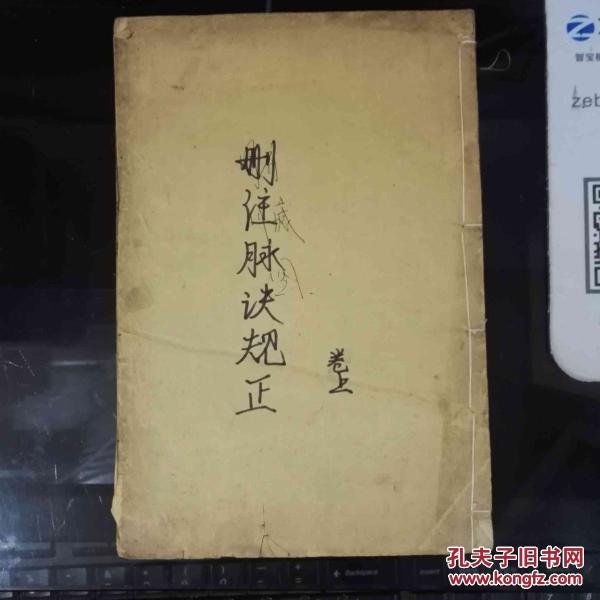 删注脉诀规正
卷上
智宝
zeb
Backspace
insert
孔夫子旧书网
www.kongfz.com